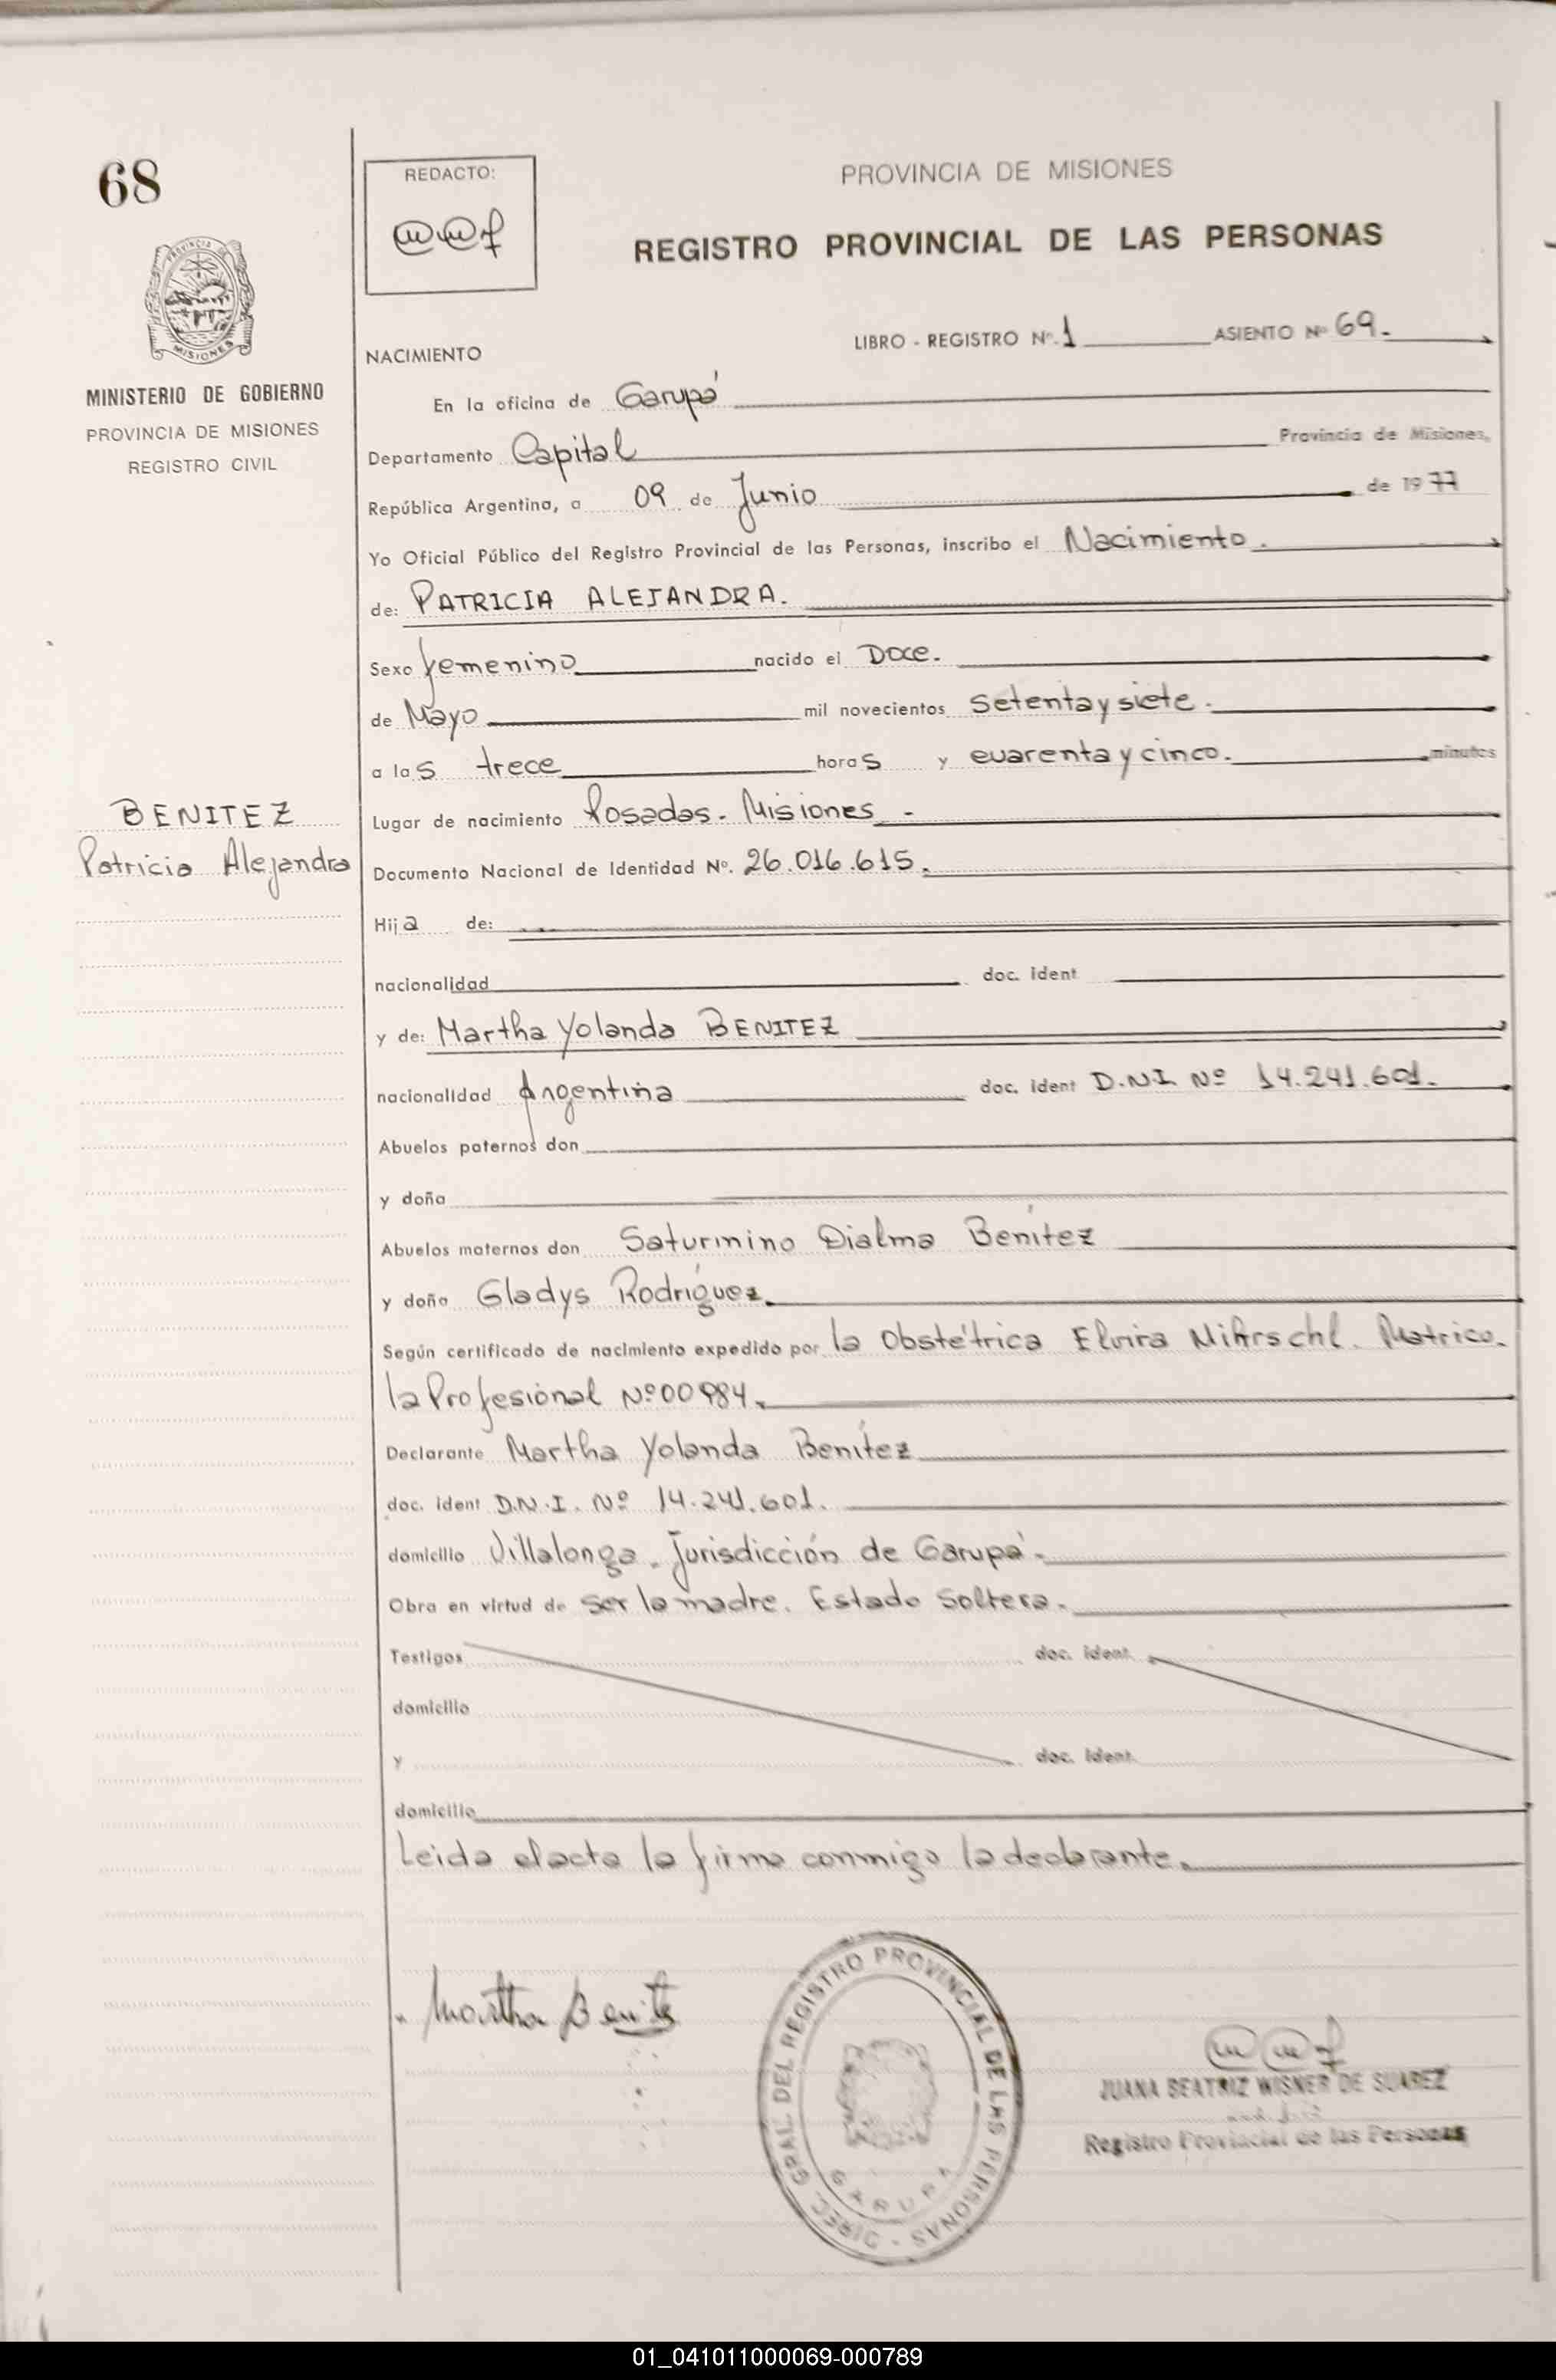 68
PROVINCIA
MISIONES
MINISTERIO DE GOBIERNO
PROVINCIA DE MISIONES
REGISTRO CIVIL
BENITEZ
Patricia Alejandra
REDACTO:
PROVINCIA DE MISIONES
REGISTRO PROVINCIAL DE LAS PERSONAS
LIBRO - REGISTRO Nº 1 ASIENTO Nº 69.
NACIMIENTO
En la oficina de Garupá
Departamento Capital Provincia de Misiones,
República Argentina, a 09 de Junio de 1977
Yo Oficial Público del Registro Provincial de las Personas, inscribo el Nacimiento.
de: PATRICIA ALEJANDRA.
Sexo femenino nacido el Doce.
de Mayo mil novecientos setenta y siete.
a las trece horas y cuarenta y cinco. minutos
Lugar de nacimiento Posadas. Misiones -
Documento Nacional de Identidad Nº. 26.016.615.
Hija de:
nacionalidad doc. ident
y de: Martha Yolanda BENITEZ
nacionalidad Argentina doc. ident D.N.I. Nº 14.241.601.
Abuelos paternos don
y doña
Abuelos maternos don Saturnino Dialma Benítez
y doña Gladys Rodríguez.
Según certificado de nacimiento expedido por la Obstétrica Elvira Matríco.
la Profesional Nº 00984.
Declarante Martha Yolanda Benítez
doc. ident D.N.I. Nº 14.241.601.
domicilio Villalonga. Jurisdicción de Garupá.
Obra en virtud de ser la madre. Estado Soltera.
Testigos doc. ident.
domicilio
y doc. ident.
domicilio
Leida el acta la firma conmigo la declarante.
Martha Benitez
DIREC. GRAL. DEL REGISTRO PROVINCIAL DE LAS PERSONAS -
GARUPA
JUANA BEATRIZ WISNER DE SUAREZ
Registro Provincial de las Personas
01_041011000069-000789